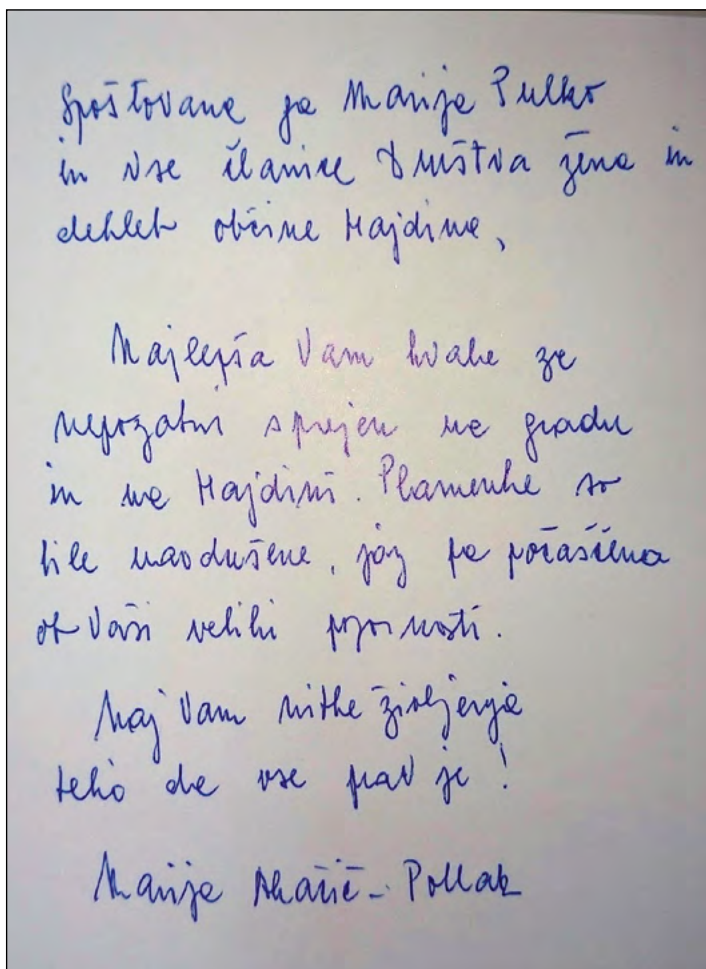 Spoštovana ga Marija Pulko
in vse članice Društva žena in
deklet občine Hajdina,
Najlepša Vam hvala za
nepozabni sprejem na gradu
in na Hajdini. Planinke so
bile navdušene, jaz pa počaščena
ob Vaši veliki pozornosti.
Naj Vam nitke življenja
teko da vse prav je!
Marija - Pollak